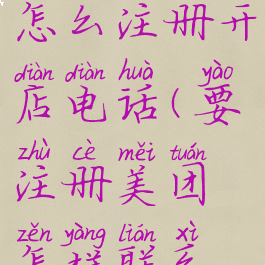 怎么注册开
diàn diàn huà yào
店电话(要
zhù cè měi tuán
注册美团
zěn yàng lián xì
怎样联系